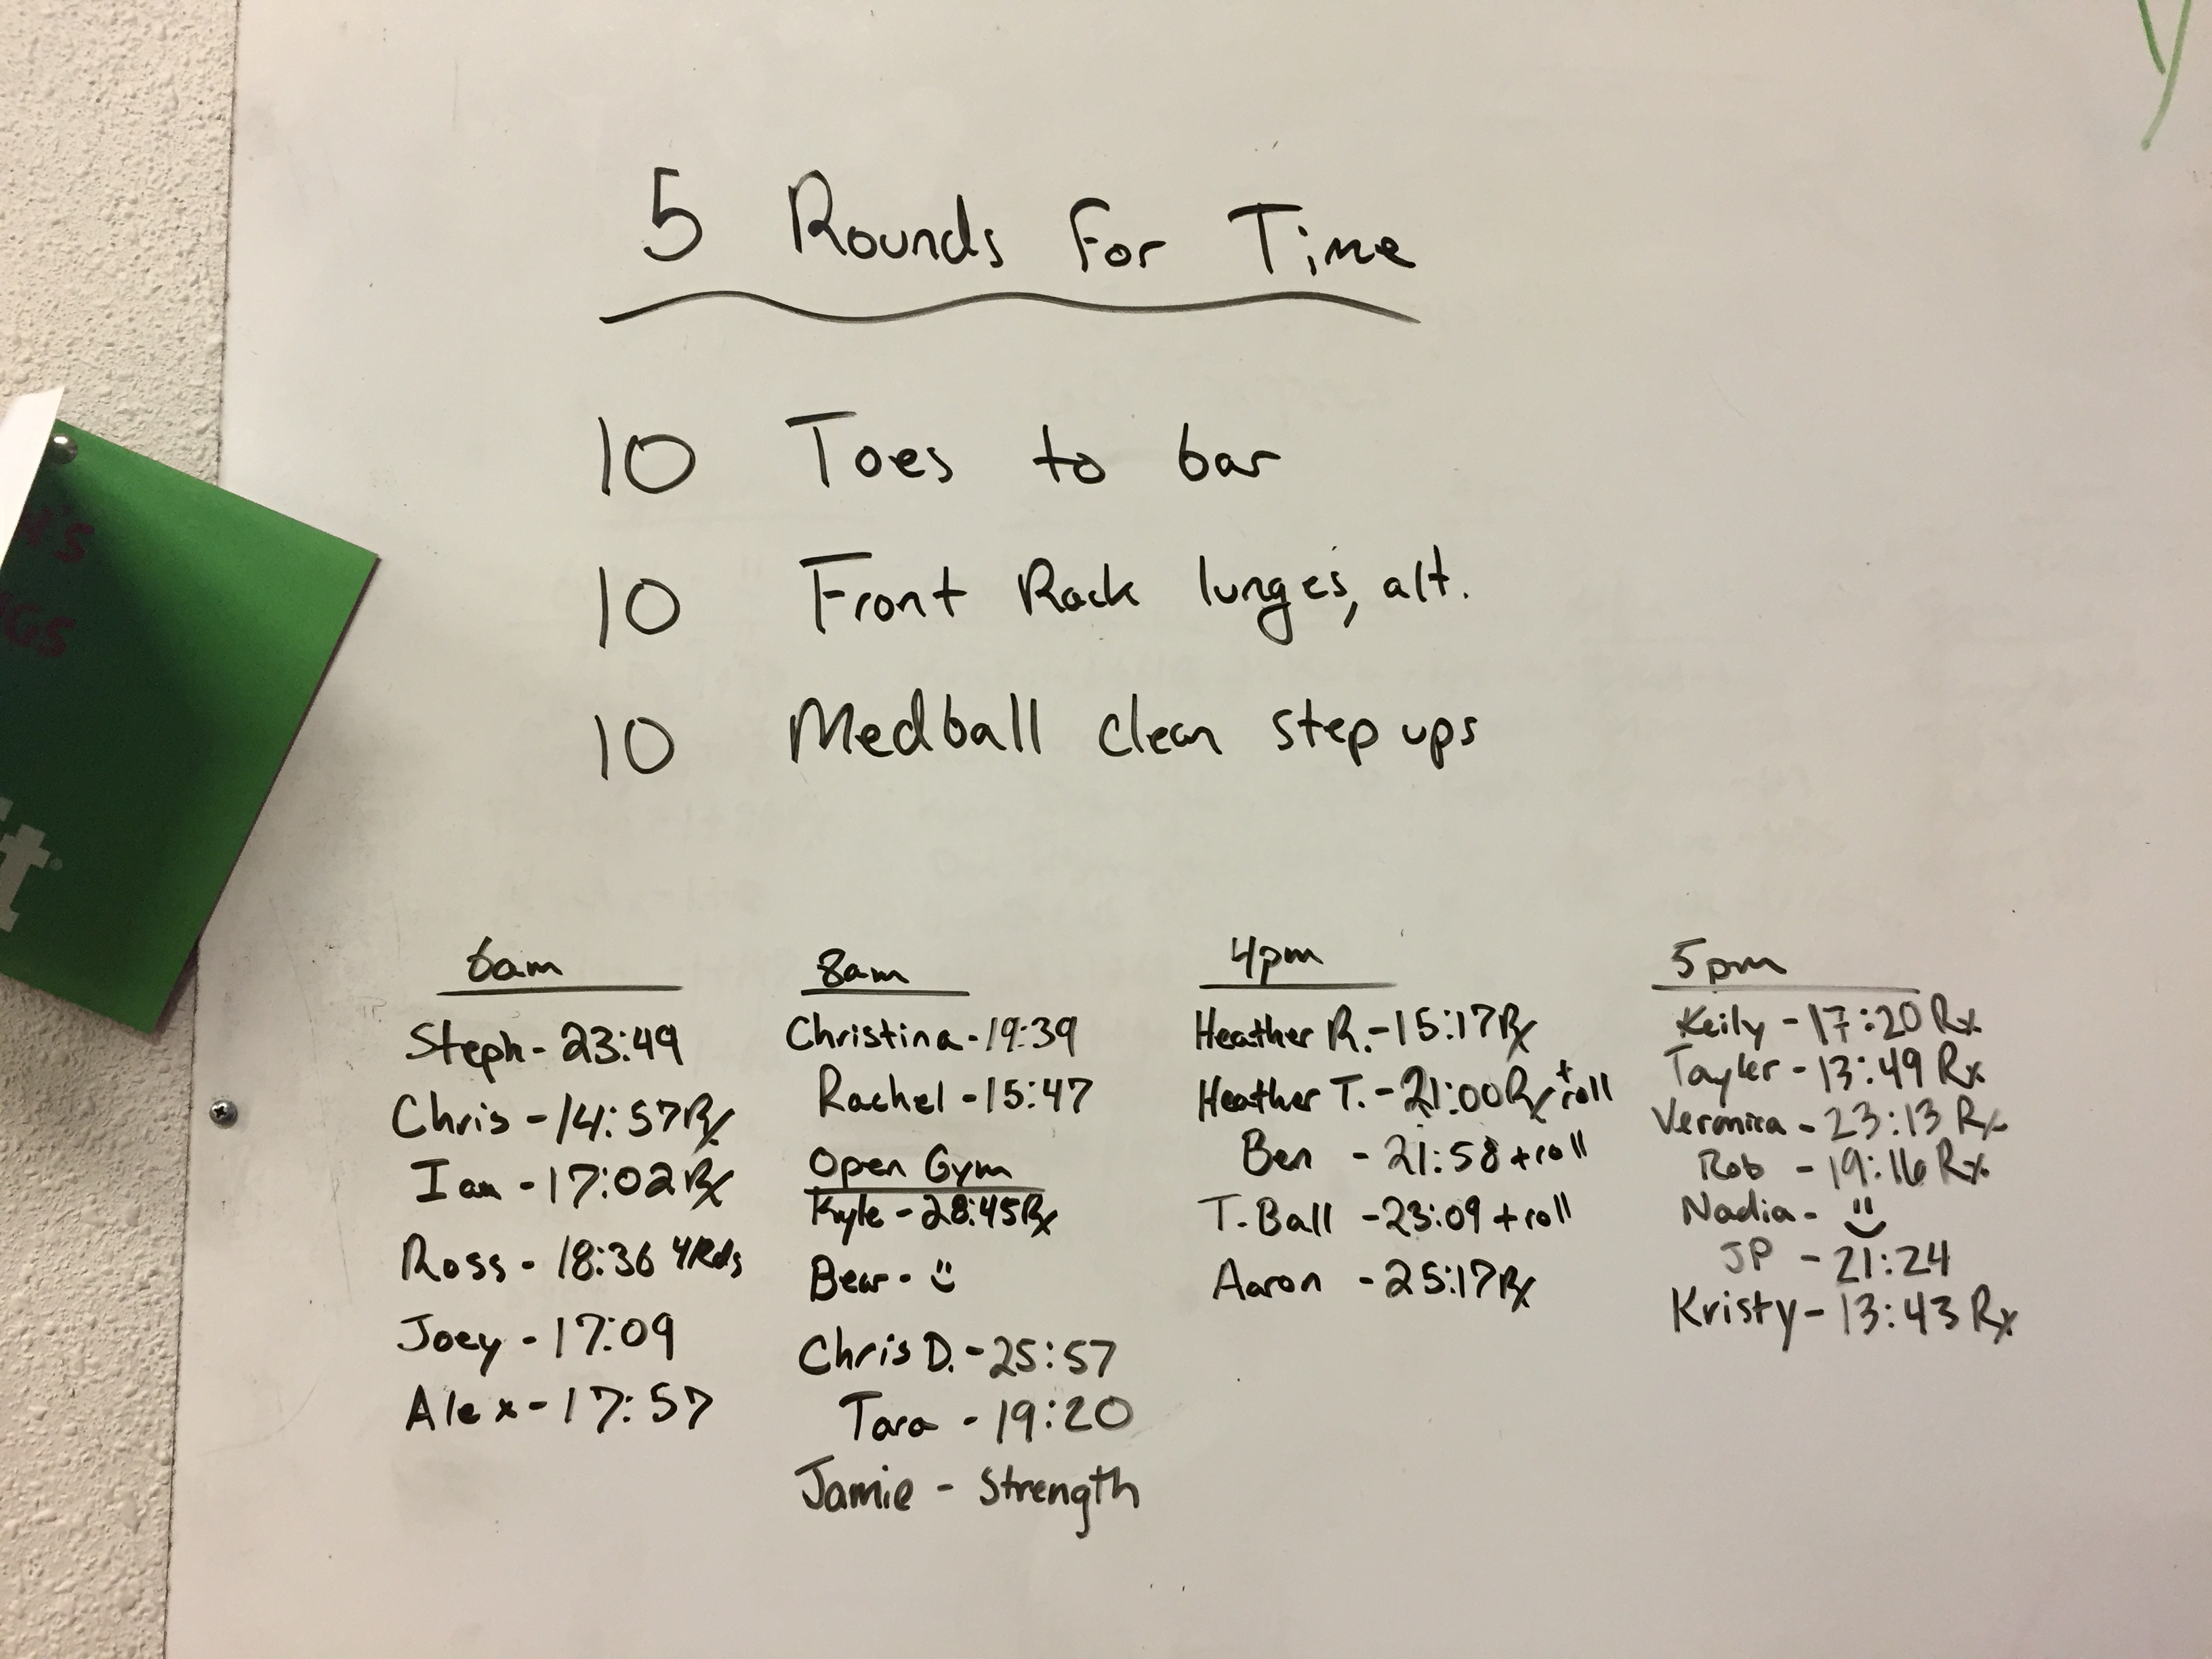 5 Rounds For Time
10 Toes to bar
10 Front Rack lunges, alt.
10 Medball clean step ups
6am
Steph - 23:49
Chris - 14:57 Rx
Ian - 17:02 Rx
Ross - 18:36 4Rds
Joey - 17:09
Alex - 17:57
8am
Christina - 19:39
Rachel - 15:47
Open Gym
Kyle - 28:45 Rx
Bear - :)
Chris D. - 25:57
Tara - 19:20
Jamie - Strength
4pm
Heather R. - 15:17 Rx
Heather T. - 21:00 Rx + roll
Ben - 21:58 + roll
T-Ball - 23:09 + roll
Aaron - 25:17 Rx
5pm
Keily - 17:20 Rx
Tayler - 13:49 Rx
Veronica - 23:13 Rx
Rob - 19:16 Rx
Nadia - :)
JP - 21:24
Kristy - 13:43 Rx